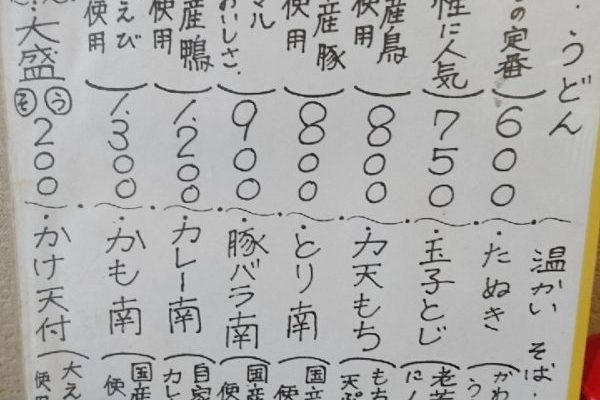 ・うどん
の定番)
600
性に人気)
750
産鳥
使用)
800
産豚
使用)
800
マル
おいしさ。)
900
産鴨
使用)
1.200
えび
使用)
1.300
大盛
そ う
200
温かい そば・
・たぬき
・玉子とじ(老若
に人
・力天もち(もち
天ぷ
・とり南(国産
使
・豚バラ南(国産
使
・カレー南(自家
カレ
・かも南(国産
使
・かけ天付(大え
使